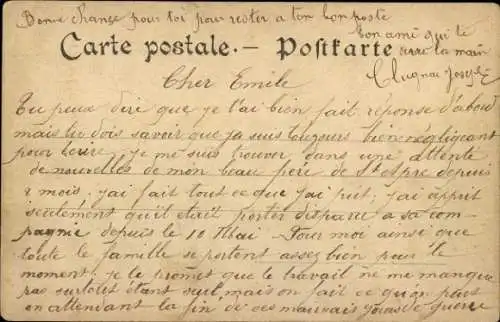 Bonne chance pour toi pour rester a ton bon poste
ton ami qui te
serre la main
Carte postale. — Postkarte
Clugnac Joseph
Cher Emile
Tu peux dire que je t'ai bien fait réponse d'abord
mais tu dois savoir que ja suis toujours bien négligeant
pour écrire, je me suis trouver dans une attente
de nouvelles de mon beau pere de St depuis
2 mois, j'ai fait tout ce que j'ai put, j'ai apprit
seulement qu'il etait porter disparu a sa com-
pagnie depuis le 10 Mai - Pour moi ainsi que
toute le famille se portent assez bien pour le
moment, je te promet que le travail ne me manque
pas surtout étant seul, mais on fait ce qu'on peut
en attendant la fin de ces mauvais jours de guerre